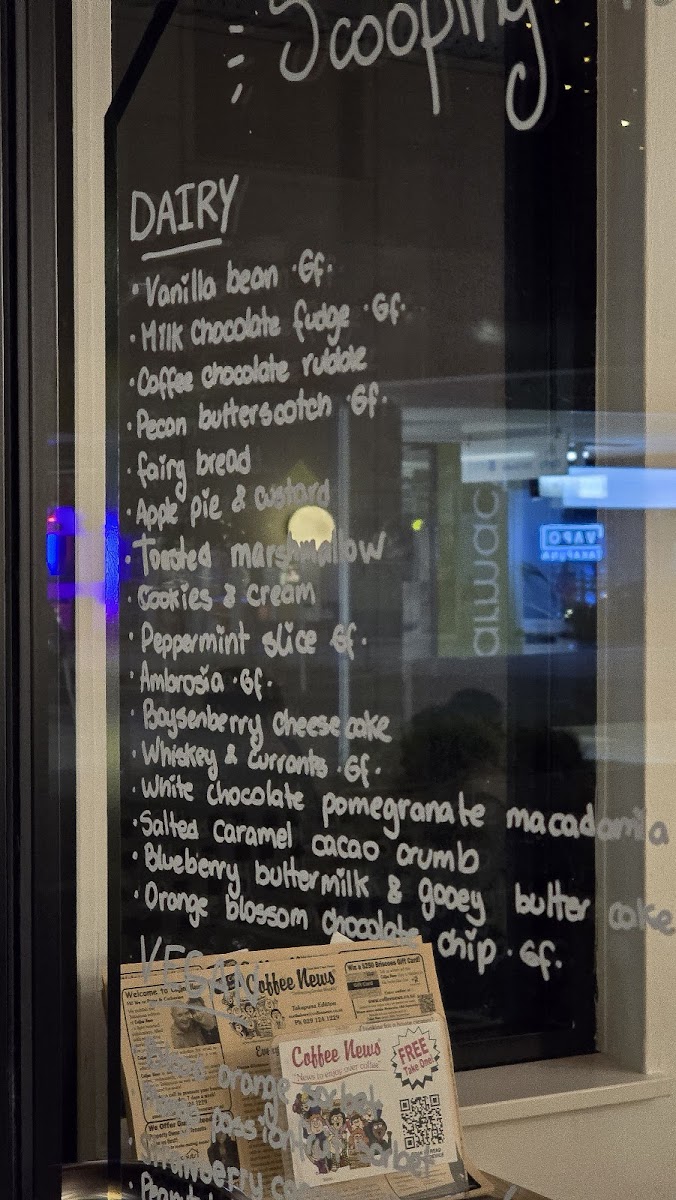 Scooping
DAIRY
· Vanilla bean · Gf ·
· Milk chocolate fudge · Gf ·
· Coffee chocolate rubble
· Pecan butterscotch · Gf ·
· fairy bread
· Apple pie & custard
· Toasted marshmallow
· Cookies & cream
· Peppermint slice · Gf ·
· Ambrosia · Gf ·
· Boysenberry cheesecake
· Whiskey & currants · Gf ·
· White chocolate pomegranate macadamia
· Salted caramel cacao crumb
· Blueberry buttermilk & gooey butter cake
· Orange blossom chocolate chip · Gf ·
VEGAN
orange sorbet
passionfruit sorbet
Strawberry
Welcome To
Coffee News
Takapuna Edition
Win a $250 Briscoes Gift Card!
We Offer
Coffee News
"News to enjoy over coffee"
FREE
Take One!
VAPO
TAKAPUNA